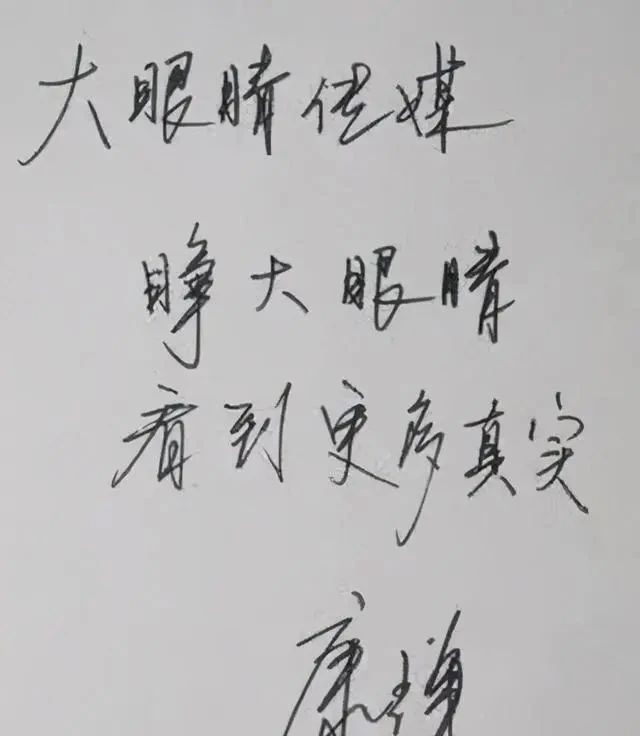 大眼睛传媒
睁大眼睛
看到更多真实
康